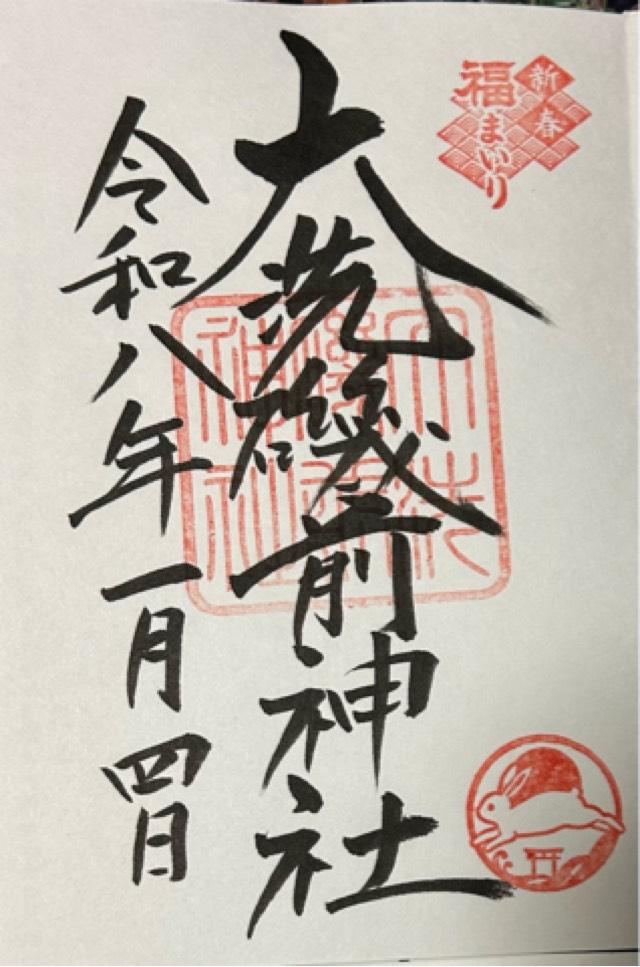 新春
福まいり
大洗磯前神社
大洗磯前神社
令和八年一月四日